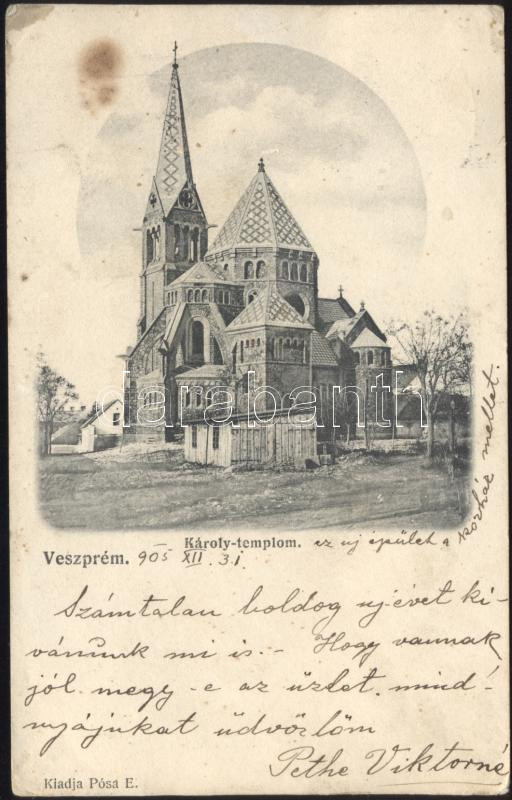 darabanth
Károly-templom. ez uj épület a kórház mellet.
Veszprém. 905 XII. 31
Számtalan boldog ujévet ki-
vánunk mi is.- Hogy vannak
jól. megy -e az üzlet. mind-
nyájukat üdvözlöm
Pethe Viktorné
Kiadja Pósa E.